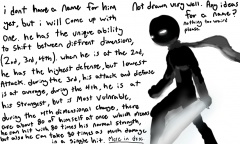 i dont have a name for him
yet, but i will come up with
one. he has the unique ability
to shift between diffrent dimensions,
(2nd, 3rd, 4th). when he is at the 2nd,
he has the highest defense, but lowest
Attack. during the 3rd, his attack and defense
is at average. during the 4th, he is at
his strongest, but is Most Vulnerable,
during the 4th dimensional change, there
are about 80 of himself at once which means
he can hit with 80 times his normal strength,
but also he can take 80 times as much damage
in a single hit. More in disc
Not drawn very well. Any ideas
for a name?
nothing too weird
please